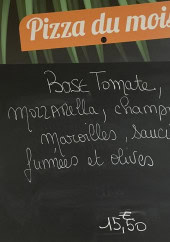 Pizza du mois
Base Tomate,
mozzarella, champ
Maroilles, sauci
fumées et olives
15,50 €